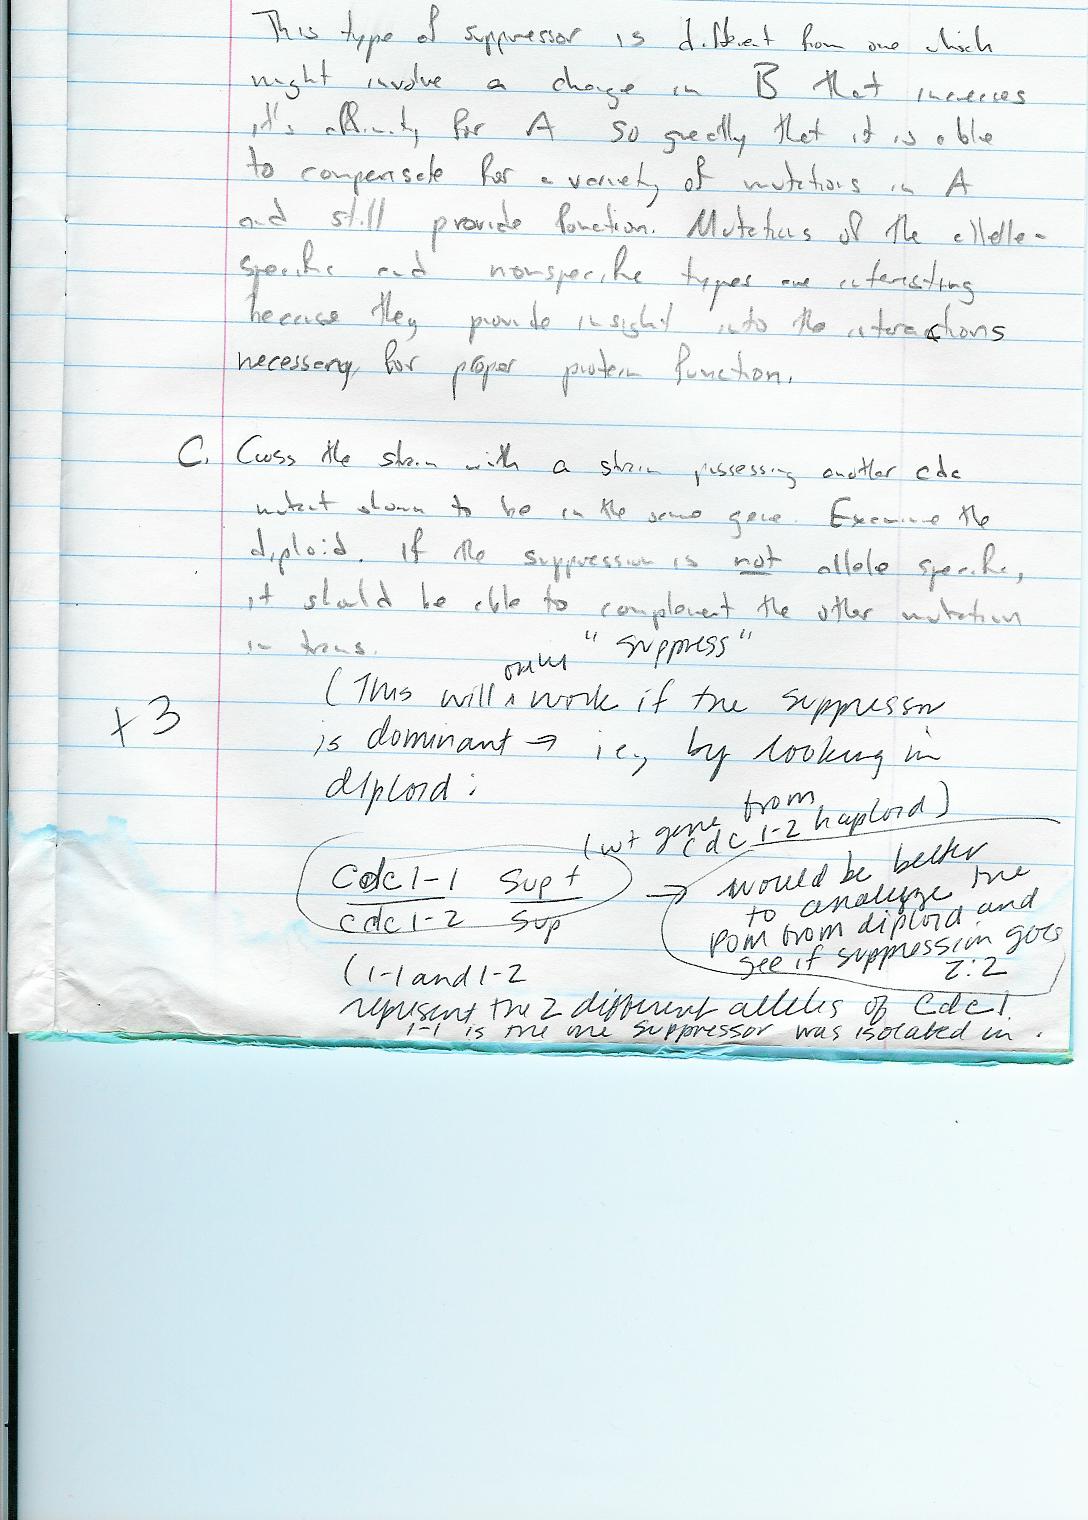 This type of suppressor is different from one which
might involve a change in B that increases
it's affinity for A so greatly that it is able
to compensate for a variety of mutations in A
and still provide function. Mutations of the allelle-
specific and nonspecific types are interesting
because they provide insight into the interactions
necessary for proper protein function.
C. Cross the strain with a strain possessing another cdc
mutant shown to be in the same gene. Examine the
diploid. If the suppression is not allele specific,
it should be able to complement the other mutation
in trans.
"suppress"
(This will only work if the suppressor
is dominant → ie, by looking in
diploid:
+3
(wt gene from
cdc 1-2 haploid)
Cdc1-1 Sup+
cdc1-2 Sup
→ would be better
to analyze the
from diploid and
see if suppression goes
2:2
(1-1 and 1-2
represent the 2 different alleles of Cdc1.
1-1 is the one suppressor was isolated in.